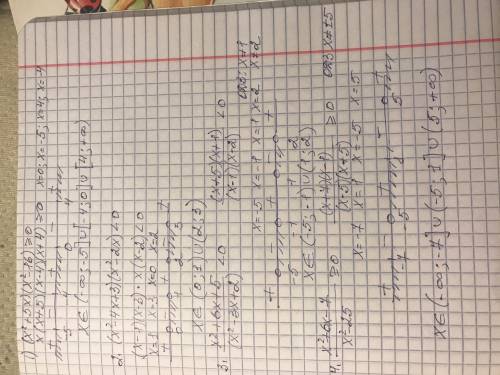 1) (x²+5x)(x²-16) ≥0
x(x+5)(x-4)(x+4) ≥0 x=0; x=-5; x=4; x=-4
-5 -4 0 4
x∈(-∞;-5]∪[-4;0]∪[4;+∞)
2. (x²-4x+3)(x²-2x)<0
(x-1)(x-3)·x(x-2)<0
x=1 x=3 x=0 x=2
+ - + - +
0 1 2 3
x∈(0;1)∪(2;3)
3. x²+6x+5 / (x²-3x+2) <0 (x+5)(x+1) / (x-1)(x-2) <0 ОДЗ: x≠1 x≠2
x=-5 x=-1 x=1 x=2
+ - + - +
-5 -1 1 2
x∈(-5;-1)∪(1;2)
4. x²+6x-7 / x²-25 ≥0 (x+7)(x-1) / (x-5)(x+5) ≥0 ОДЗ x≠±5
x=-7 x=1 x=-5 x=5
+ - + - +
-7 -5 1 5
x∈(-∞;-7]∪(-5;1]∪(5;+∞)